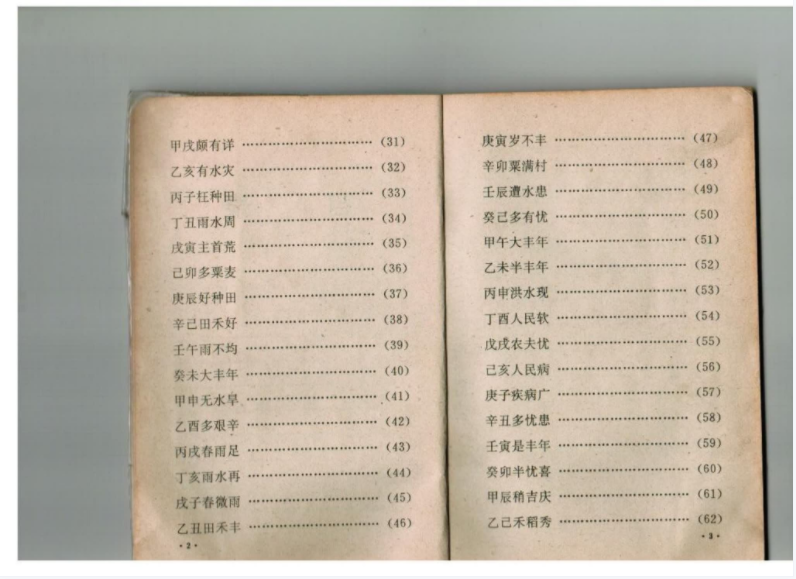 甲戌颇有详 ………………………… (31)
乙亥有水灾 ………………………… (32)
丙子枉种田 ………………………… (33)
丁丑雨水周 ………………………… (34)
戌寅主首荒 ………………………… (35)
己卯多粟麦 ………………………… (36)
庚辰好种田 ………………………… (37)
辛己田禾好 ………………………… (38)
壬午雨不均 ………………………… (39)
癸未大丰年 ………………………… (40)
甲申无水旱 ………………………… (41)
乙酉多艰辛 ………………………… (42)
丙戌春雨足 ………………………… (43)
丁亥雨水再 ………………………… (44)
戌子春微雨 ………………………… (45)
乙丑田禾丰 ………………………… (46)
·2·
庚寅岁不丰 ………………………… (47)
辛卯粟满村 ………………………… (48)
壬辰遭水患 ………………………… (49)
癸己多有忧 ………………………… (50)
甲午大丰年 ………………………… (51)
乙未半丰年 ………………………… (52)
丙申洪水现 ………………………… (53)
丁酉人民软 ………………………… (54)
戊戌农夫忧 ………………………… (55)
己亥人民病 ………………………… (56)
庚子疾病广 ………………………… (57)
辛丑多忧患 ………………………… (58)
壬寅是丰年 ………………………… (59)
癸卯半忧喜 ………………………… (60)
甲辰稍吉庆 ………………………… (61)
乙己禾稻秀 ………………………… (62)
·3·